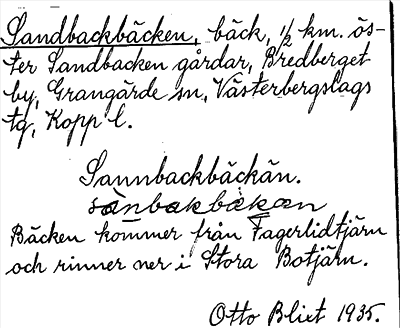 Sandbackbäcken, bäck, 1/2 km. ös-
ter Sandbacken gårdar, Bredberget
by, Grangärde sn, Västerbergslags
tg, Kopp l.
Sannbackbäckän.
sanbakbäkæn
Bäcken kommer från Fagerlidtjärn
och rinner ner i Stora Botjärn.
Otto Blixt 1935.